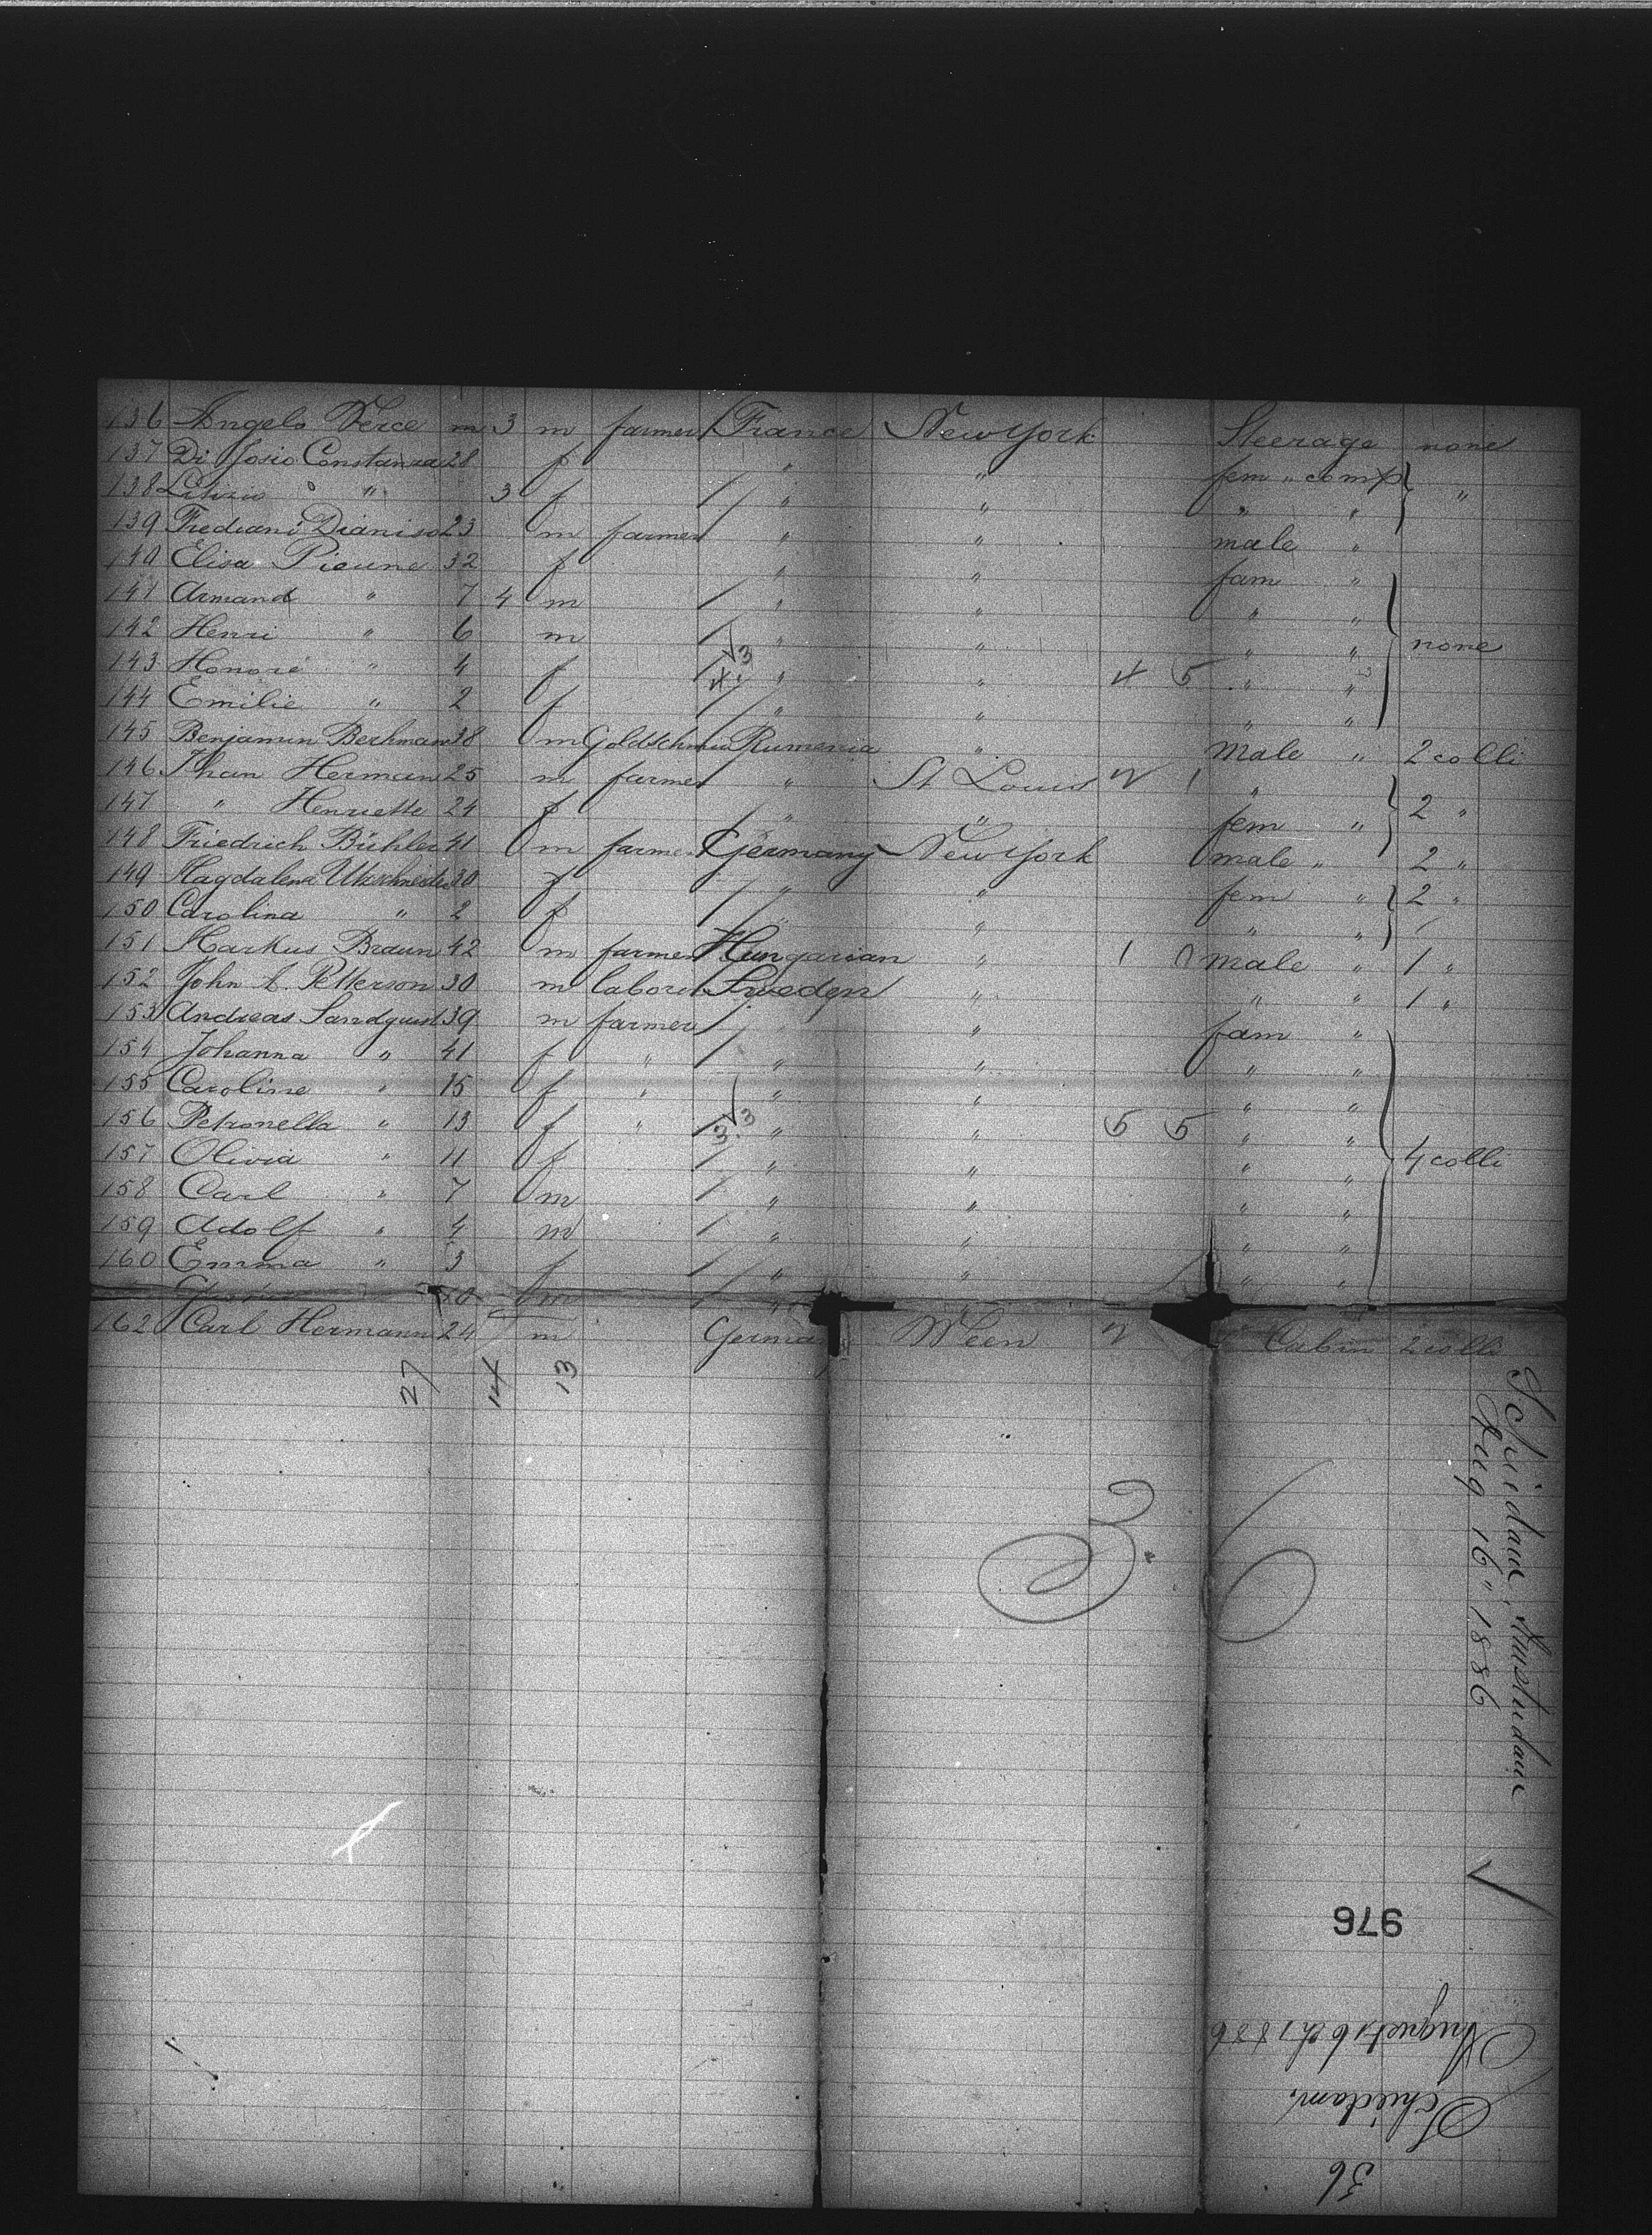 136 Angelo Verce m 3 m farmer France New York Steerage none
137 Di Josio Constanza 28 f " " fem " comp "
138 Litizio " 3 f " " " "
139 Frediani Dianiso 23 m farmer " " male "
140 Elisa Pieune 32 f " " fam "
141 Armand " 7 4 m " " " "
142 Henri " 6 m " " " " none
143 Honoré " 4 f " " 4 5 " "
144 Emilie " 2 f " " " "
145 Benjamin Berhman 38 m Goldschmid Rumenia " Male " 2 colli
146 Jhan Herman 25 m farmer " St Louis 2 1 "
147 " Henriette 24 f " " fem " 2 "
148 Friedrich Bühler 41 m farmer Germany New York male " 2 "
149 Magdalena 30 f " " fem " 2 "
150 Carolina " 2 f " " " "
151 Markus Braun 42 m farmer Hungarian " 1 male " 1 "
152 John A. Petterson 30 m laborer Sweden " " " 1 "
153 Andreas Sandquist 39 m farmer " " fam "
154 Johanna " 41 f " " " " "
155 Caroline " 15 f " " " " "
156 Petronella " 13 f " " " 5 5 " "
157 Olivia " 11 f " " " " 4 colli
158 Carl " 7 m " " " "
159 Adolf " 4 m " " " "
160 Emma " 3 f " " " "
m
162 Carl Hermann 24 m Germany Ween 2 Cabin 2 colli
27 14 13
Schiedam, Amsterdam
Aug 16" 1886
976
August 16th 1886
Schiedam.
36